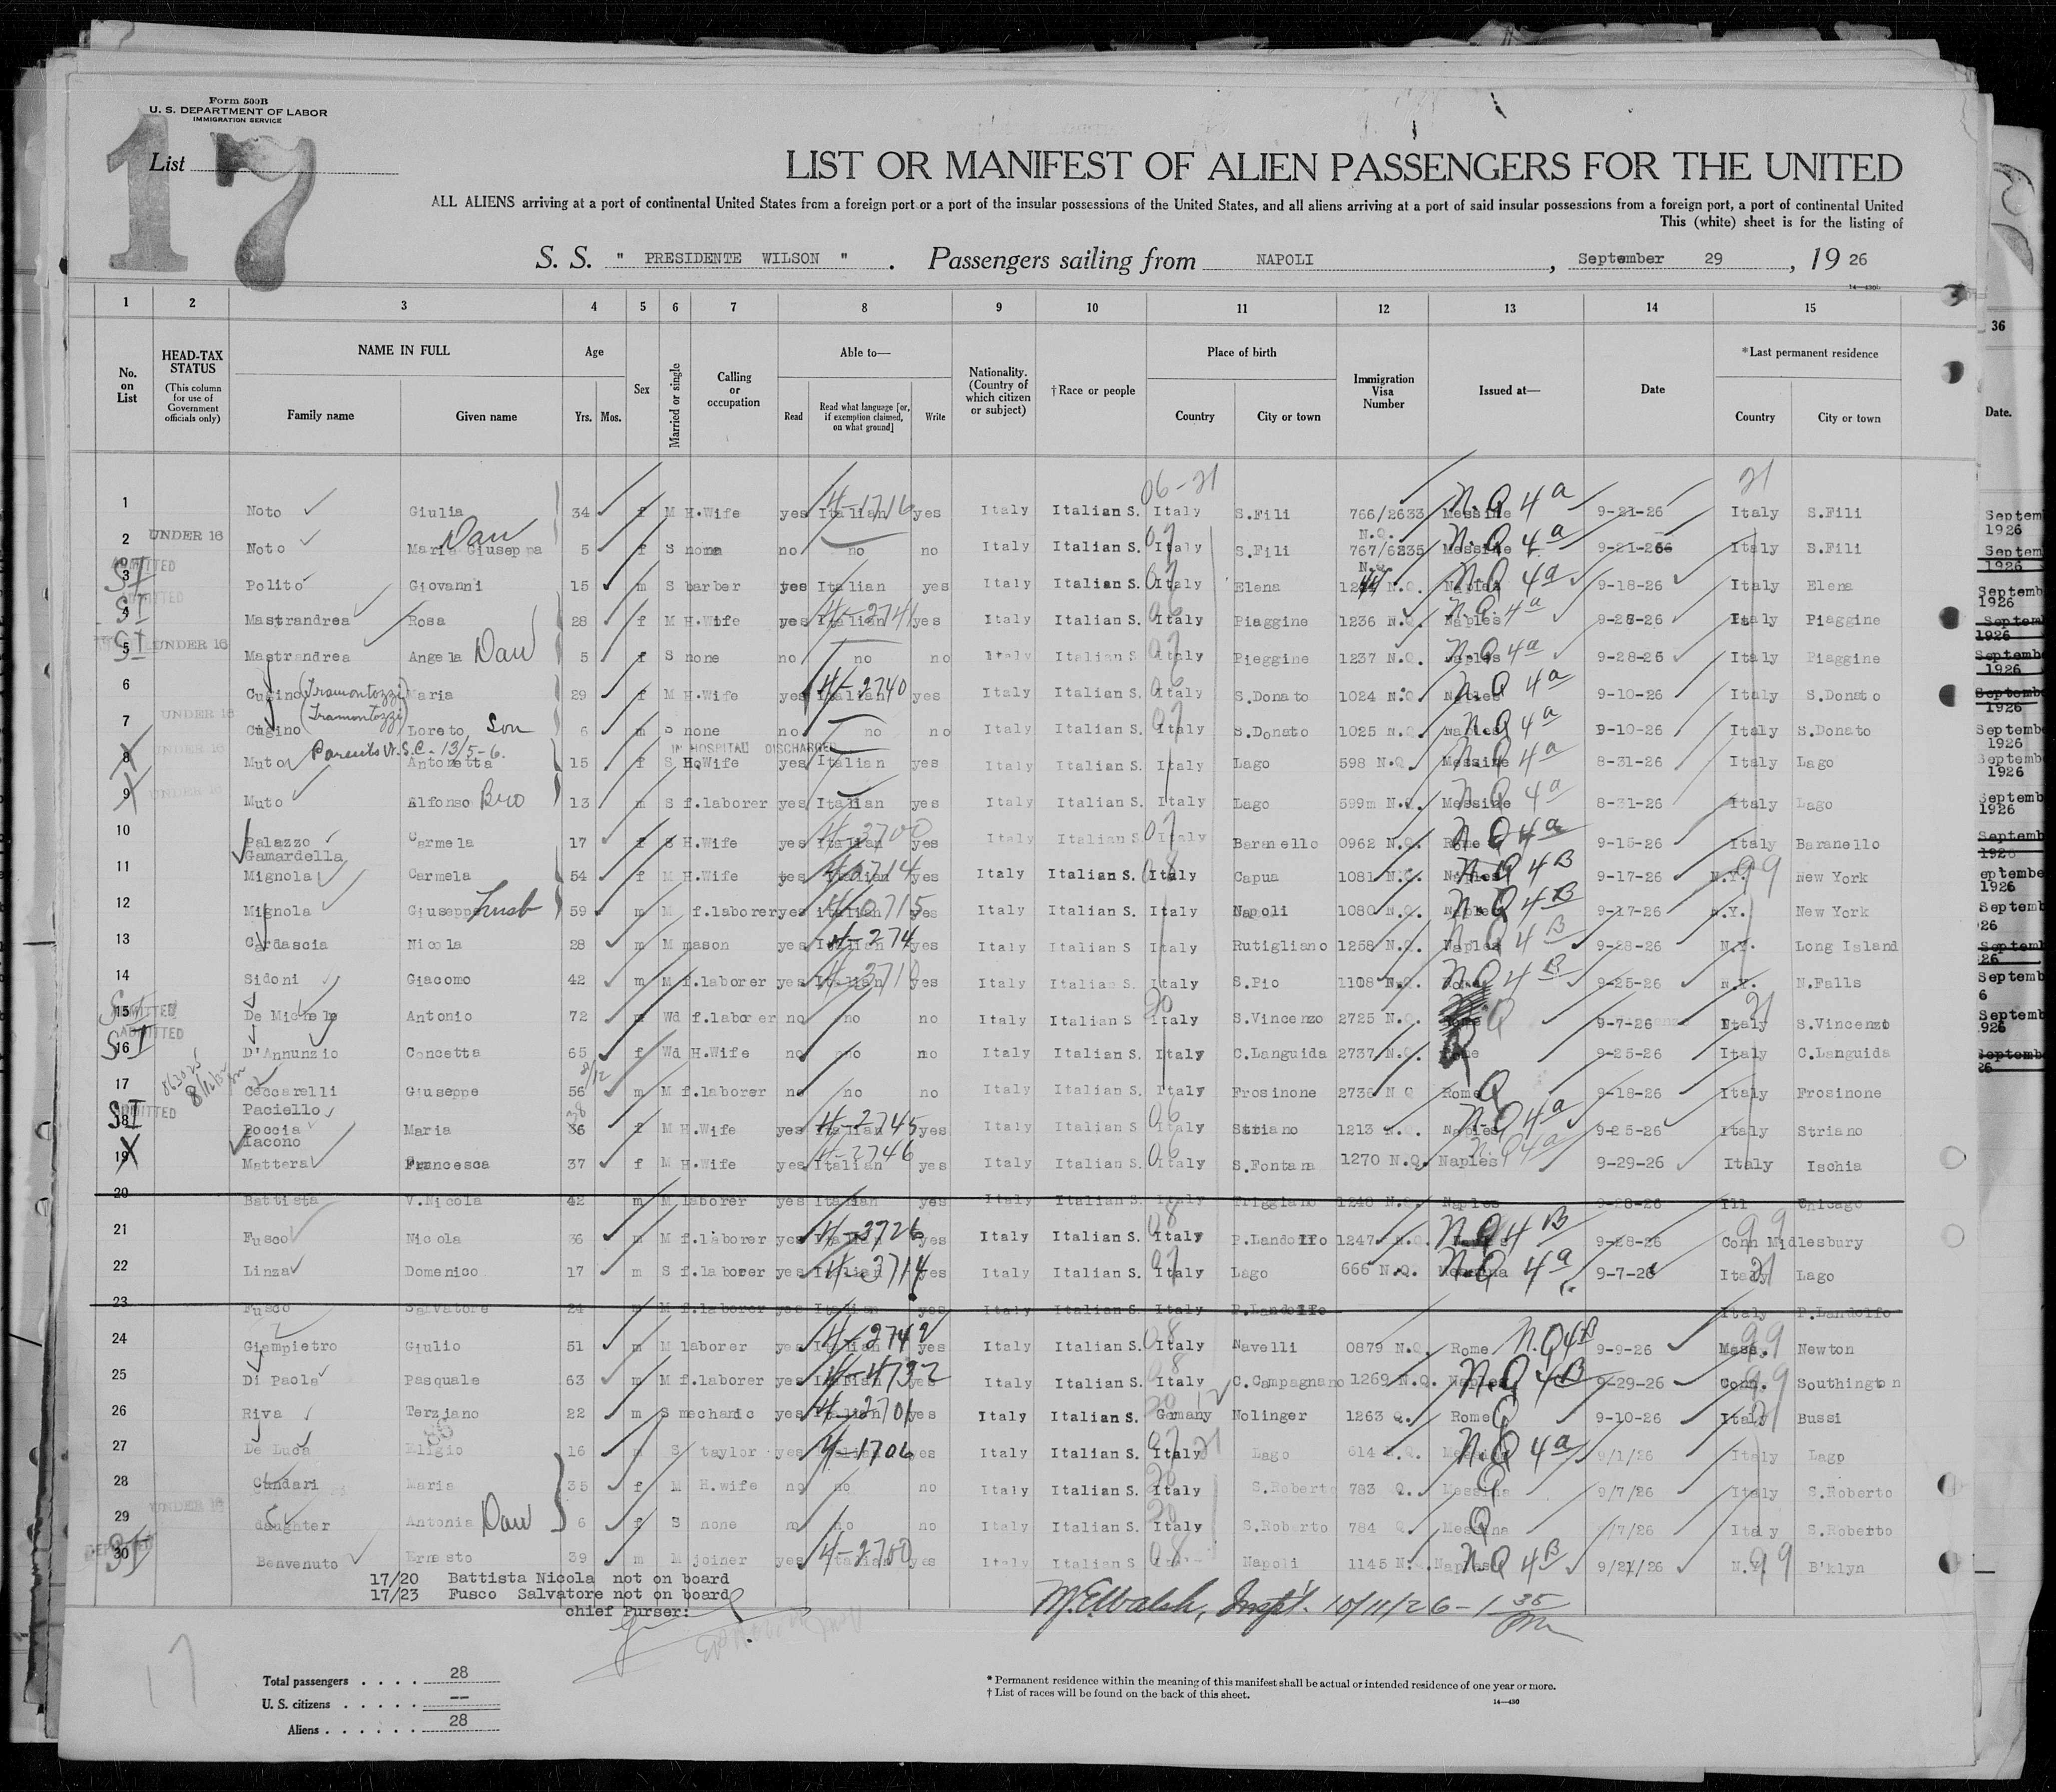 Form 500B
U. S. DEPARTMENT OF LABOR
IMMIGRATION SERVICE
List
17
LIST OR MANIFEST OF ALIEN PASSENGERS FOR THE UNITED
ALL ALIENS arriving at a port of continental United States from a foreign port or a port of the insular possessions of the United States, and all aliens arriving at a port of said insular possessions from a foreign port, a port of continental United
This (white) sheet is for the listing of
S. S. " PRESIDENTE WILSON " . Passengers sailing from NAPOLI , September 29 , 19 26
1 2 3 4 5 6 7 8 9 10 11 12 13 14 15 36
No. on List
HEAD-TAX STATUS (This column for use of Government officials only)
NAME IN FULL Family name Given name
Age Yrs. Mos.
Sex
Married or single
Calling or occupation
Able to— Read Read what language [or, if exemption claimed, on what ground] Write
Nationality. (Country of which citizen or subject)
†Race or people
Place of birth Country City or town
Immigration Visa Number
Issued at—
Date
*Last permanent residence Country City or town
Date.
06-21 21
1 Noto Giulia 34 f M H.Wife yes Italian 4-1716 yes Italy Italian S. Italy S.Fili 766/2633 N.Q. Messina N.Q 4a 9-21-26 Italy S.Fili
2 UNDER 16 Noto Maria Giuseppa Dau 5 f S none no no no Italy Italian S. Italy S.Fili N.Q. Messina N.Q 4a Italy S.Fili
3 SI ADMITTED Polito Giovanni 15 m S barber yes Italian yes Italy Italian S. Italy Elena N.Q. Naples N.Q 4a 9-18-26 Italy Elena
4 SI Mastrandrea Rosa 28 f M H.Wife yes Italian 4-2741 yes Italy Italian S. Italy Piaggine 1236 N.Q. Naples N.Q. 4a 9-28-26 Italy Piaggine
5 SI UNDER 16 Mastrandrea Angela Dau 5 f S none no no no Italy Italian S Italy Pieggine 1237 N.Q. Naples N.Q 4a 9-28-26 Italy Piaggine
6 Cugino (Tramontozzi) Maria 29 f M H.Wife yes Italian 4-2740 yes Italy Italian S. Italy S.Donato 1024 N.Q Naples N.Q 4a 9-10-26 Italy S.Donato
7 UNDER 16 Cugino (Tramontozzi) Loreto Son 6 m S none no no no Italy Italian S. Italy S.Donato 1025 N.Q. Naples N.Q 4a 9-10-26 Italy S.Donato
IN HOSPITAL DISCHARGED
8 X UNDER 16 Muto Antonetta 15 f S H.Wife yes Italian yes Italy Italian S. Italy Lago 598 N.Q. Messina N.Q 4a 8-31-26 Italy Lago
9 X UNDER 16 Muto Alfonso Bro 13 m S f.laborer yes Italian yes Italy Italian S. Italy Lago 599m N.Q. Messina N.Q 4a 8-31-26 Italy Lago
10 Palazzo Carmela 17 f S H.Wife yes Italian 4-3700 yes Italy Italian S Italy Baranello 0962 N.Q. Rome N.Q 4a 9-15-26 Italy Baranello
Gamardella
11 Mignola Carmela 54 f M H.Wife yes Italian yes Italy Italian S. Italy Capua 1081 N.Q. Naples N.Q 4B 9-17-26 N.Y. 99 New York
12 Mignola Giuseppe husb 59 m M f.laborer yes italian yes Italy Italian S. Italy Napoli 1080 N.Q. Naples N.Q 4B 9-17-26 N.Y. New York
13 Cardascia Nicola 28 m M mason yes Italian 4-274 yes Italy Italian S Italy Rutigliano 1258 N.Q. Naples N.Q 4B 9-28-26 N.Y. Long Island
14 Sidoni Giacomo 42 m M f.laborer yes Italian yes Italy Italian S. Italy S.Pio 1108 N.Q. N.Q 4B 9-25-26 N.Y. N.Falls
15 SI ADMITTED De Michele Antonio 72 m Wd f.laborer no no no Italy Italian S Italy S.Vincenzo 2725 N.Q. Rome Q 9-7-26 Italy 21 S.Vincenzo
16 SI ADMITTED D'Annunzio Concetta 65 f Wd H.Wife no no no Italy Italian S. Italy C.Languida 2737 N.Q. Rome Q 9-25-26 Italy C.Languida
17 Ceccarelli Giuseppe 56 m M f.laborer no no no Italy Italian S. Italy Frosinone 2736 N Q Rome Q 9-18-26 Italy Frosinone
Paciello
18 SI ADMITTED Boccia Maria 36 38 f M H.Wife yes Italian 4-2745 yes Italy Italian S Italy Striano 1213 N.Q. Naples N.Q 4a 9-25-26 Italy Striano
Iacono
19 X Mattera Francesca 37 f M H.Wife yes Italian 4-2746 yes Italy Italian S. Italy S.Fontana 1270 N.Q. Naples N.Q 4a 9-29-26 Italy Ischia
20 Battista V.Nicola 42 m M laborer yes Italian yes Italy Italian S. Italy Triggiano 1248 N.Q. Naples 9-28-26 Ill Chicago
21 Fusco Nicola 36 m M f.laborer yes Italian 4-3726 yes Italy Italian S. Italy P.Landolfo 1247 N.Q. N.Q 4B 9-28-26 Conn 99 Midlesbury
22 Linza Domenico 17 m S f.laborer yes Italian 4-3714 yes Italy Italian S. Italy Lago 666 N.Q. Messina N.Q 4a 9-7-26 Italy 21 Lago
23 Fusco Salvatore 24 m M f.laborer yes Italian yes Italy Italian S. Italy P.Landolfo Italy P.Landolfo
24 Giampietro Giulio 51 m M laborer yes Italian 4-2742 yes Italy Italian S. Italy Navelli 0879 N.Q. Rome N.Q4B 9-9-26 Mass. 99 Newton
25 Di Paola Pasquale 63 m M f.laborer yes Italian 4-4732 yes Italy Italian S. Italy C.Campagnano 1269 N.Q. Naples N.Q 4B 9-29-26 Conn. 99 Southington
26 Riva Terziano 22 m S mechanic yes Italian 4-2701 yes Italy Italian S. Grmany Nolinger 1263 Q. Rome Q 9-10-26 Italy 21 Bussi
27 De Luca Eligio 16 m S taylor yes 4-1706 yes Italy Italian S. Italy 21 Lago 614 N.Q. Messina N.Q 4a 9/1/26 Italy Lago
28 Cundari Maria 35 f M H.wife no no no Italy Italian S. Italy S.Roberto 783 Q. Messina Q 9/7/26 Italy S.Roberto
29 UNDER 16 daughter Antonia Dau 6 f S none no no Italy Italian S. Italy S.Roberto 784 Q. Messina Q 9/7/26 Italy S.Roberto
30 SI Benvenuto Ernesto 39 m M joiner yes Italian 4-2750 yes Italy Italian S Italy Napoli 1145 N. Naples N.Q 4B 9/21/26 N.Y. 99 B'klyn
17/20 Battista Nicola not on board
17/23 Fusco Salvatore not on board
chief Purser:
M.E.Walsh, Inspt. 10/11/26 - 1 35 Pm
17
Total passengers . . . . 28
U. S. citizens . . . . . --
Aliens . . . . . . 28
* Permanent residence within the meaning of this manifest shall be actual or intended residence of one year or more.
† List of races will be found on the back of this sheet.
14—430